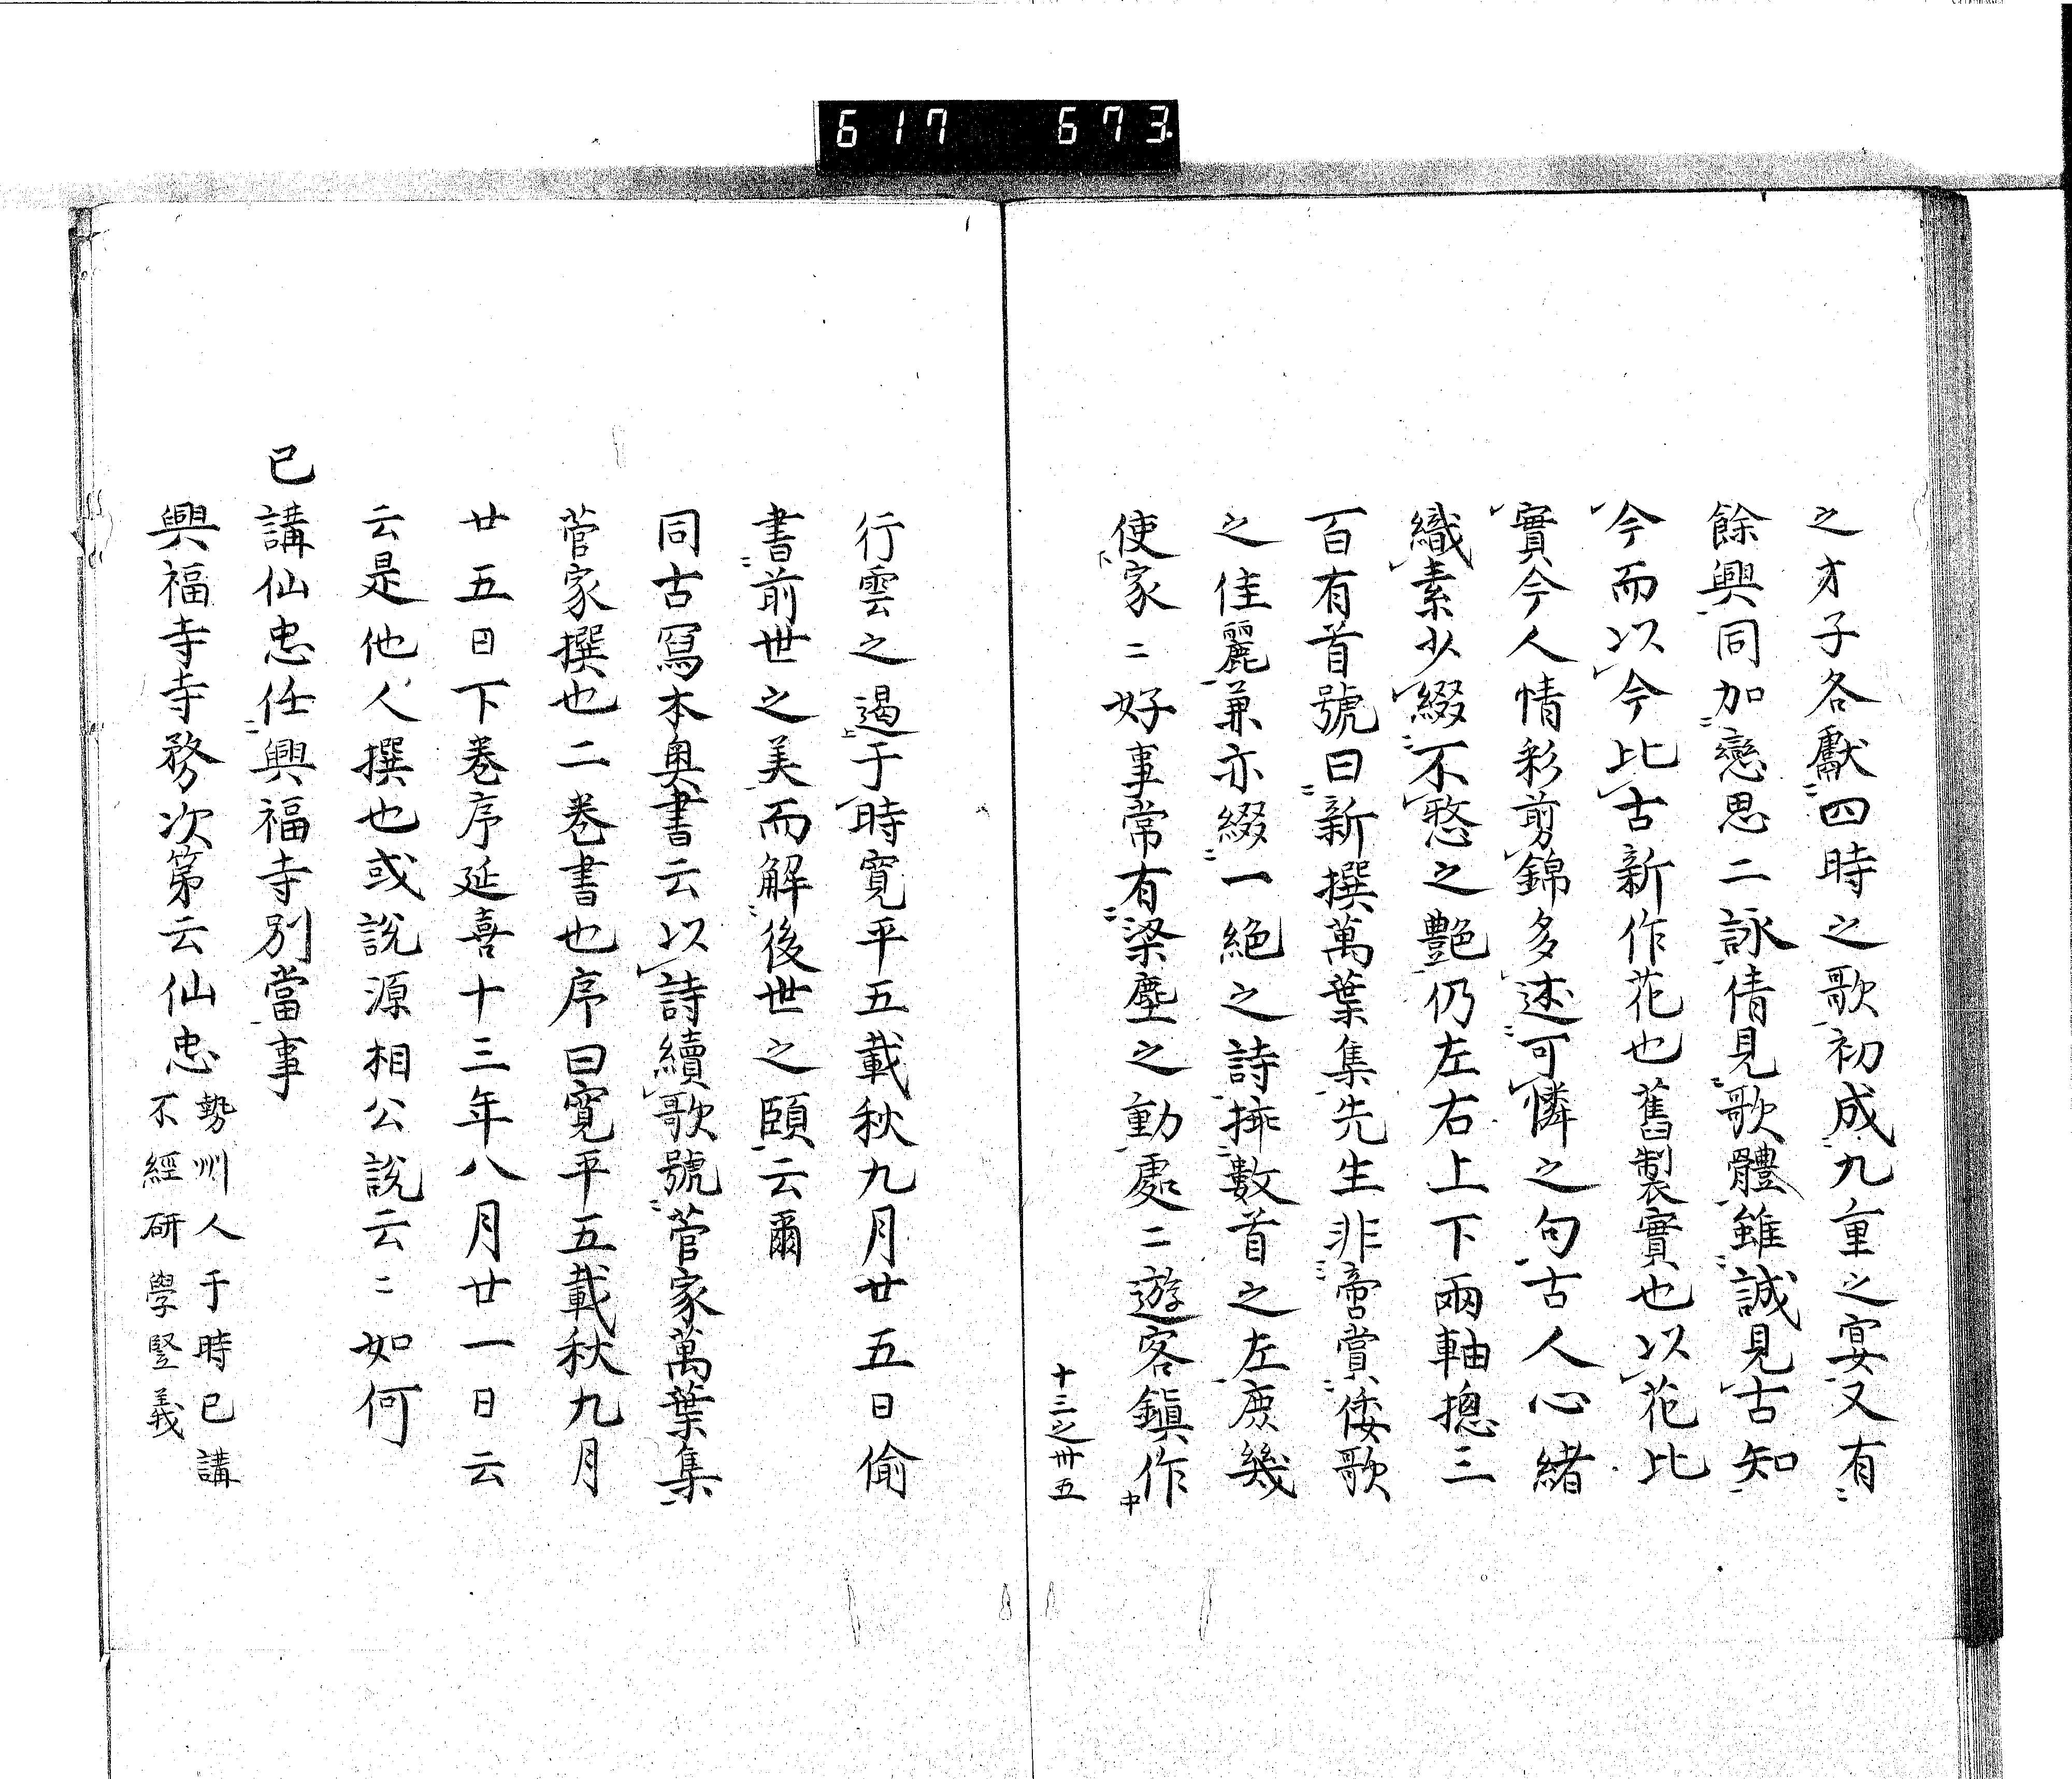 617 673
之才子各獻四時之歌初成九重之宴又有
餘興同加戀思二詠倩見歌體雖誠見古知
今而以今比古新作花也舊製實也以花比
實今人情彩剪錦多述可憐之句古人心緒
織素少綴不憗之艷仍左右上下兩軸摠三
百有首號曰新撰萬葉集先生非啻賞倭歌
之佳麗兼亦綴一絶之詩挿數首之左庶幾
使家〻好事常有梁塵之動處〻遊客鎮作
十三之卅五
行雲之遏于時寛平五載秋九月廿五日偷
書前世之美而解後世之頤云爾
同古寫本奥書云以詩續歌號菅家萬葉集
菅家撰也二巻書也序曰寛平五載秋九月
廿五日下巻序延喜十三年八月廿一日云
云是他人撰也或説源相公説云〻如何
已講仙忠任興福寺別當事
興福寺寺務次第云仙忠勢州人于時已講
不經研學竪義